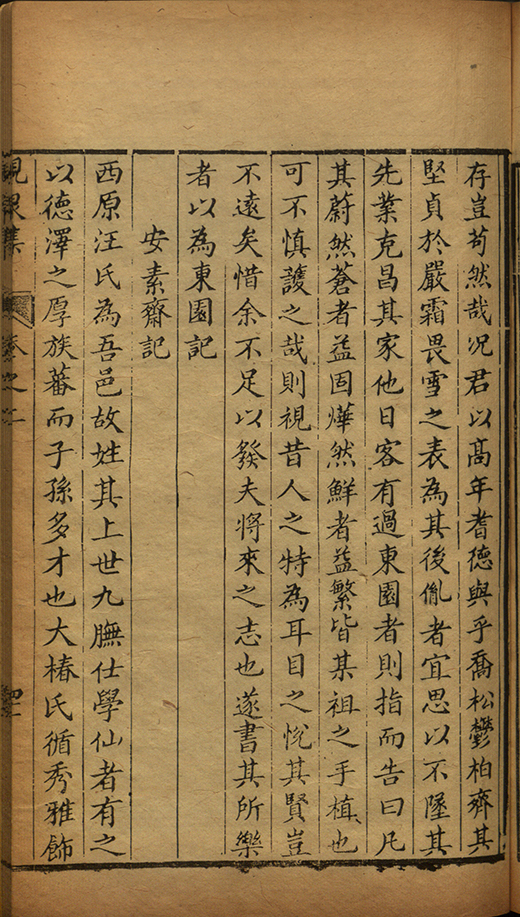 存豈苟然哉况君以高年耆德與乎喬松鬱柏齊其
堅貞於嚴霜畏雪之表為其後胤者宜思以不墜其
先業克昌其家他日客有過東園者則指而告曰凡
其蔚然蒼者益固燁然鮮者益繁皆某祖之手植也
可不慎護之哉則視昔人之特為耳目之悅其賢豈
不遠矣惜余不足以發夫將來之志也遂書其所樂
者以為東園記
安素齋記
西原汪氏為吾邑故姓其上世九膴仕學仙者有之
以德澤之厚族蕃而子孫多才也大椿氏循秀雅飾
集
卷之